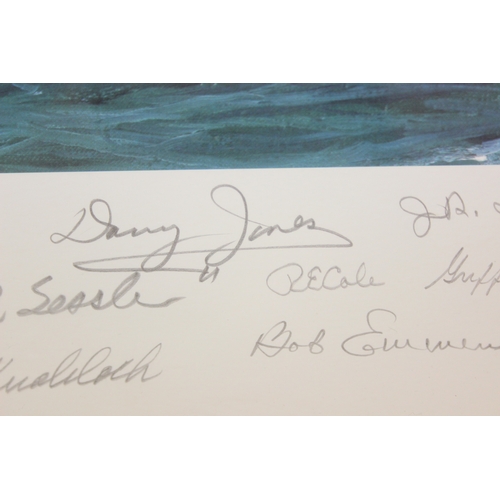 Danny Jones J.R.
Sessler RECole Griff
Knobloch Bob Emmen